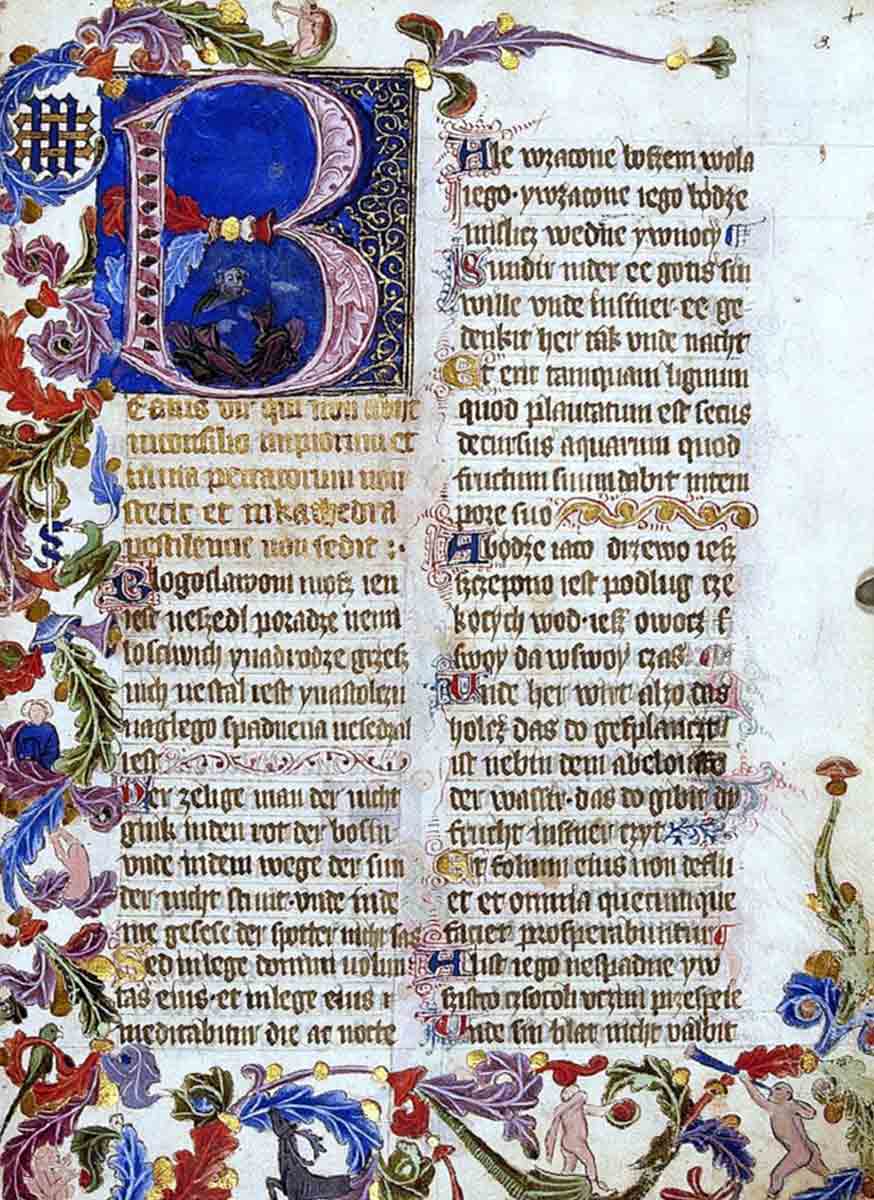 B
eatus vir qui non abiit
in consilio impiorum et
in via peccatorum non
stetit et in kathedra
pestilencie non sedit :·
Blogoslawoni mosz ien
iest neszedl poradze nemi
losciwich ynadrodze grzesz
nich nestal iest ynastolczu
naglego spadnena nesedzal
iest
Der zelige man der nicht
gink in den rot der bosin
vnde in dem wege der sun
der nicht stunt·vnde inde
me gesese der spotter nicht sas
Sed in lege domini volun
tas eius·et in lege eius
meditabitur die ac nocte
3.
Ale wzacone boszem wola
iego·ywzacone iego bodze
mislicz wedne ywnocy
Sundir nider ee gotis sin
wille vnde in siner·ee ge
denkit her tak vnde nacht
Et erit tamquam lignum
quod plantatum est secus
decursus aquarum quod
fructum suum dabit intem
pore suo
Abodze iaco drzewo iesz
szczepono iest podlug cze
kocych wod·iesz owocz
swoy da wswoy czas
Unde her wirt alzo das
holcz das do geplanczt
ist nebin dem abeloufte
der wassir·das do gibit dy
frucht in siner czyt
Et folium eius non deflu
et et omnia quecumque
faciet prosperabuntur
Alist iego nespadne yw
szistco czsocoli vczini przespeie
Unde sin blat nicht valbit